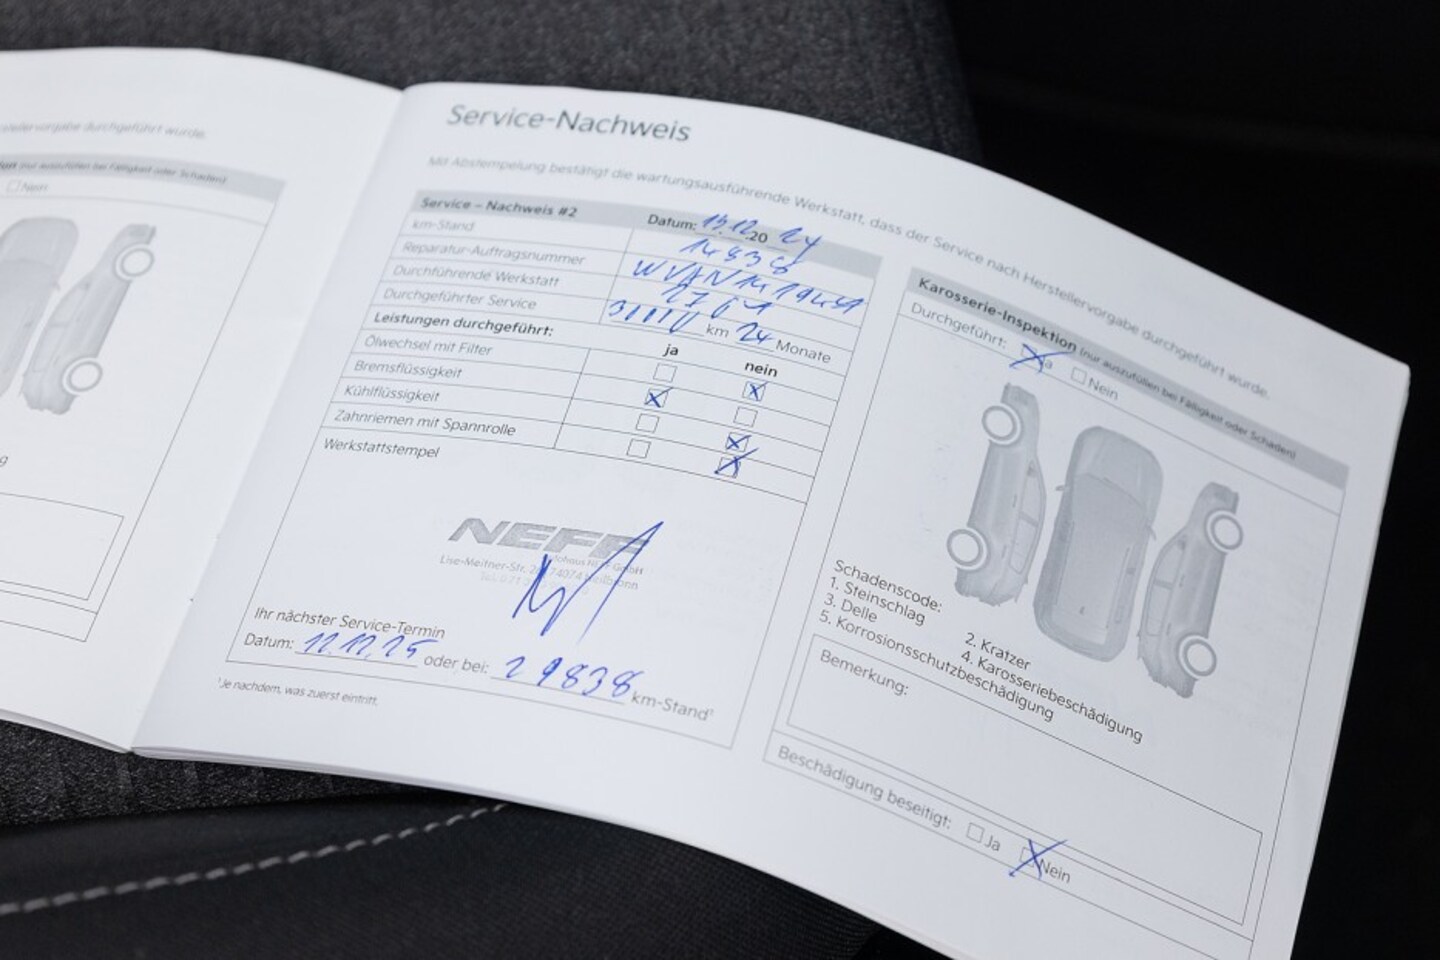 stellervorgabe durchgeführt wurde.
(nur auszufüllen bei Fälligkeit oder Schaden)
Nein
Service-Nachweis
Mit Abstempelung bestätigt die wartungsausführende Werkstatt, dass der Service nach Herstellervorgabe durchgeführt wurde.
Service – Nachweis #2 Datum: 20 24
km-Stand 14838
Reparatur-Auftragsnummer
Durchführende Werkstatt
Durchgeführter Service km 24 Monate
Leistungen durchgeführt: ja nein
Ölwechsel mit Filter
Bremsflüssigkeit
Kühlflüssigkeit
Zahnriemen mit Spannrolle
Werkstattstempel
NEFF
Lise-Meitner-Str. 74074 Heilbronn
Ihr nächster Service-Termin
Datum: 12.12.25 oder bei: 29838 km-Stand¹
¹Je nachdem, was zuerst eintritt.
Karosserie-Inspektion (nur auszufüllen bei Fälligkeit oder Schaden)
Durchgeführt: Ja Nein
Schadenscode:
1. Steinschlag 2. Kratzer
3. Delle 4. Karosseriebeschädigung
5. Korrosionsschutzbeschädigung
Bemerkung:
Beschädigung beseitigt: Ja Nein